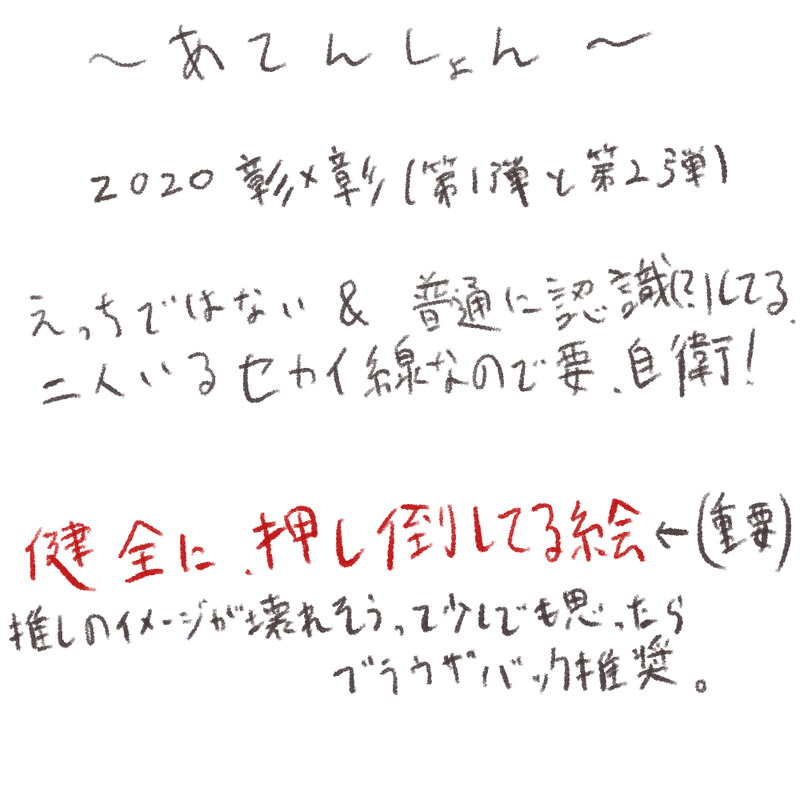 ～あてんしょん～
2020 彰×彰(第1弾と第2弾)
えっちではない & 普通に認識してる.
二人いるセカイ線なので要、自衛!
健全に、押し倒してる絵←(重要)
推しのイメージが壊れそうって少しでも思ったら
ブラウザバック推奨。